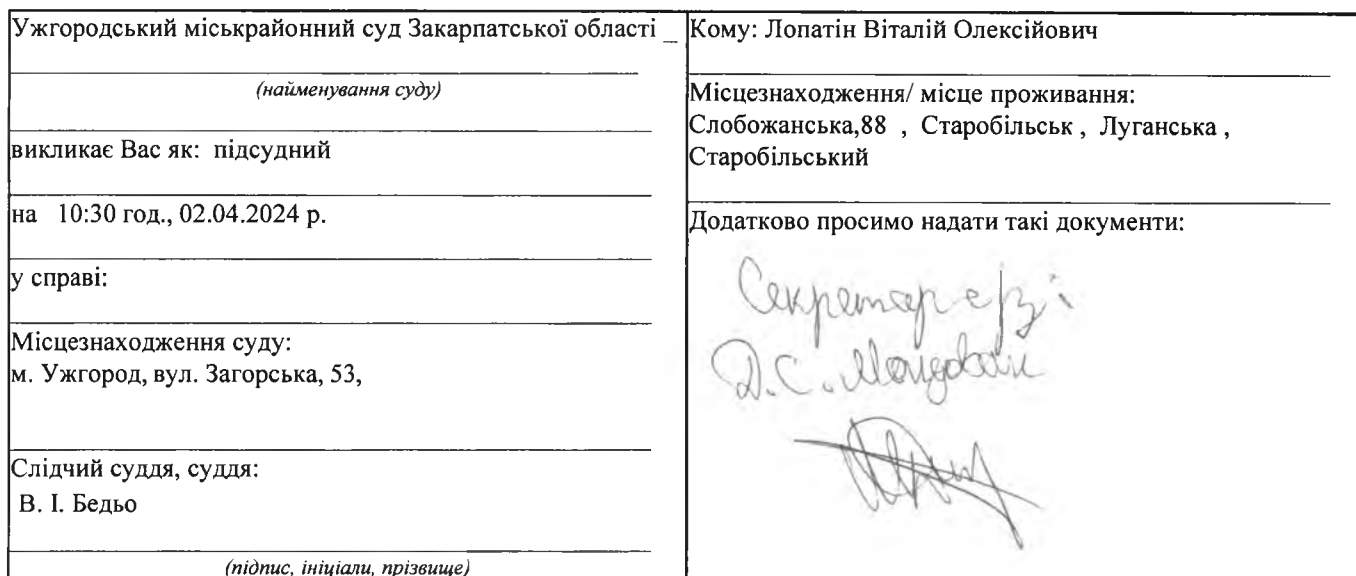 Ужгородський міськрайонний суд Закарпатської області _
(найменування суду)
викликає Вас як: підсудний
на 10:30 год., 02.04.2024 р.
у справі:
Місцезнаходження суду:
м. Ужгород, вул. Загорська, 53,
Слідчий суддя, суддя:
В. І. Бедьо
(підпис, ініціали, прізвище)
Кому: Лопатін Віталій Олексійович
Місцезнаходження/ місце проживання:
Слобожанська,88 , Старобільськ , Луганська ,
Старобільський
Додатково просимо надати такі документи:
Секретар с/з:
Д.С. Молдован